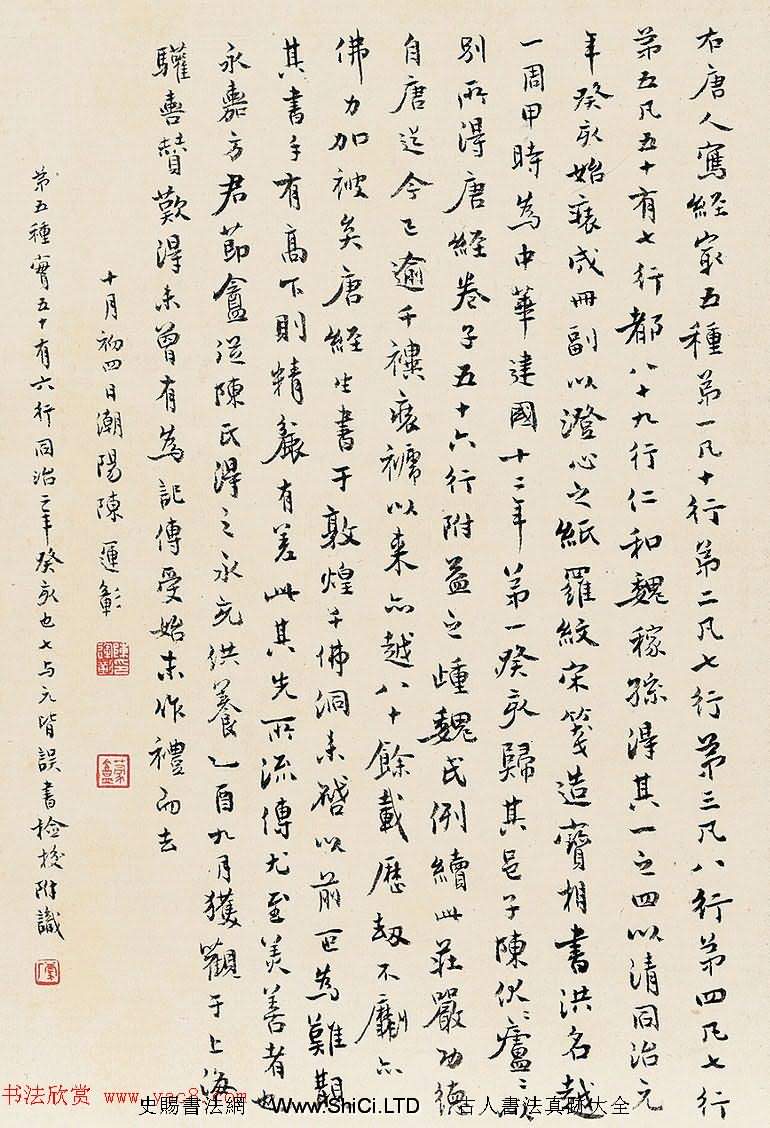 右唐人寫經寂五種第一凡十行第二凡七行第三凡八行第四凡七行
第五凡五十有七行都八十九行仁和魏稼孫得其一之四以清同治元
年癸亥始裝成冊副以澄心之紙羅紋宋箋造寶相書洪名越
一周甲時為中華建國十二年第一癸亥歸其邑子陳伏廬以
別所得唐經卷子五十六行附益之踵魏氏例續此莊嚴功德
自唐迄今已逾千禩裝褫以來亦越八十餘載歷劫不劘亦
佛力加被矣唐經生書于敦煌千佛洞未啓以前叵為難覯
其書手有高下則精麤有差此其先所流傳尤至美善者也
永嘉方君節盦從陳氏得之永充供養乙酉九月獲觀于上海
驩喜贊歎得未曾有為記傳受始末作禮而去
十月初四日潮陽陳運彰
第五種實五十有六行同治二年癸亥也七与元皆誤書檢校附識
书法欣赏 www.yac8.com
史賜書法網 Www.ShiCi.LTD 古人書法真跡大全